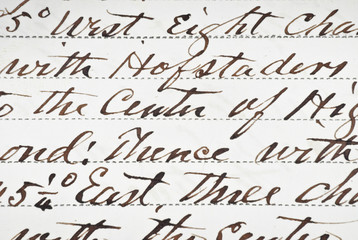 5° West Eight Cha
with Hofstaders
to the Center of Hig
ond: Thence with
45¼° East, Three cha
with the Center